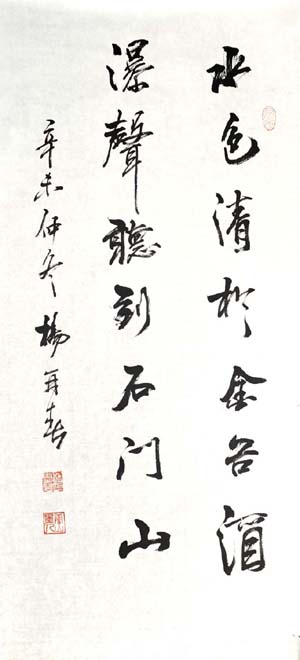 水色清於金谷澗
瀑聲聽到石门山
辛未仲冬楊再春